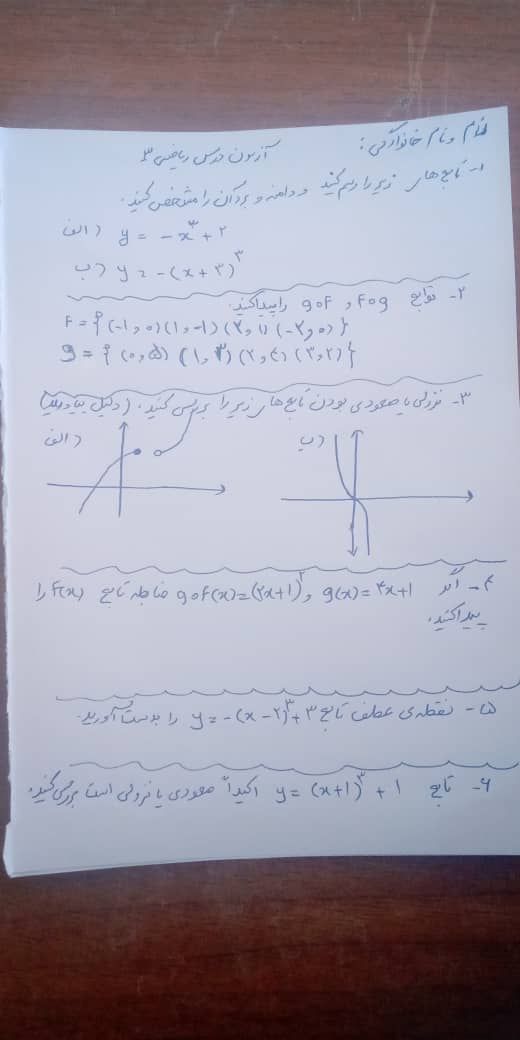 نام و نام خانوادگی:
آزمون درس ریاضی ۳
۱- تابع های زیر را رسم کنید و دامنه و برد آن را مشخص کنید.
الف) y = -x³ + ۲
ب) y = -(x + ۳)³
۲- توابع fog و gof را پیدا کنید.
F = {(-۱, ۰) (۱, -۱) (۲, ۱) (-۲, ۰)}
g = {(۰, ۵) (۱, ۳) (۲, ۴) (۳, ۲)}
۳- نزولی یا صعودی بودن تابع های زیر را بررسی کنید. (دلیل بیاورید)
الف)
ب)
۴- اگر g(x) = ۴x+1 و gof(x) = (۲x+1)² ضابطه تابع f(x) را
پیدا کنید.
۵- نقطه ی عطف تابع y = -(x - ۲)³ + ۳ را بدست آورید.
۶- تابع y = (x+1)³ + 1 اکیداً صعودی یا نزولی است بررسی کنید.